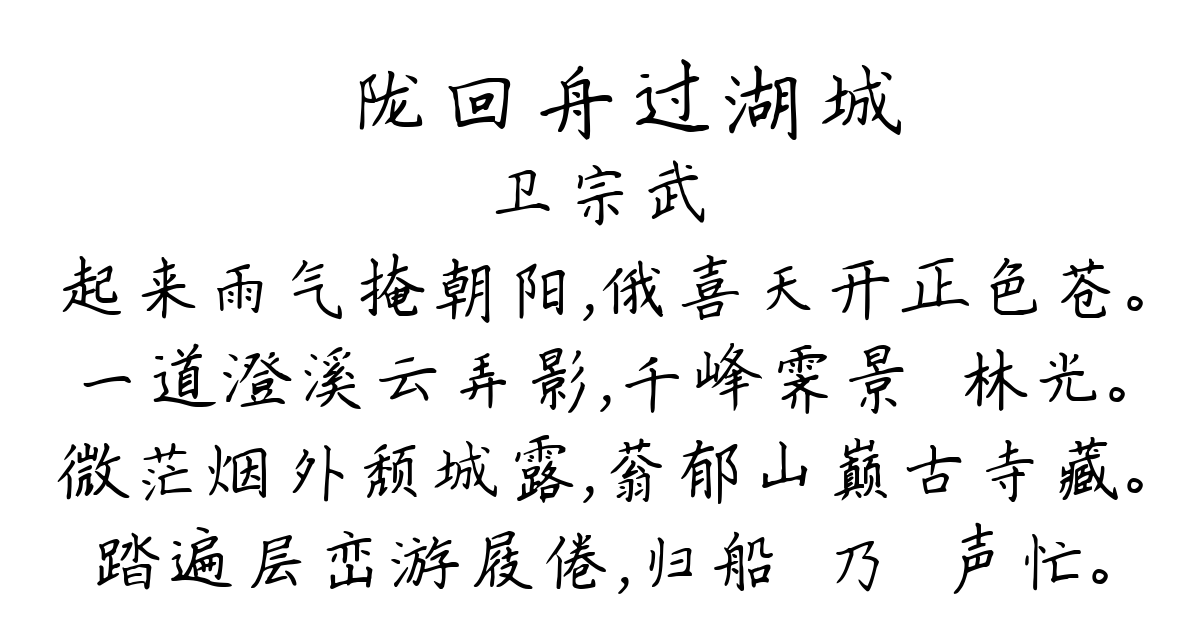 陇回舟过湖城
卫宗武
起来雨气掩朝阳,俄喜天开正色苍。
一道澄溪云弄影,千峰霁景 林光。
微茫烟外颓城露,蓊郁山巅古寺藏。
踏遍层峦游屐倦,归船 乃 声忙。